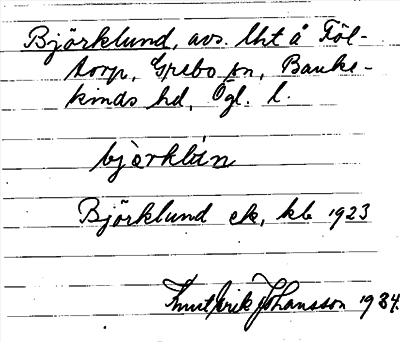 Björklund, avs. lht å Föl-
torp, Grebo sn, Banke-
kinds hd, Ögl. l.
bjö̀rklún
Björklund ek, kb 1923
Knut Erik Johansson 1934.